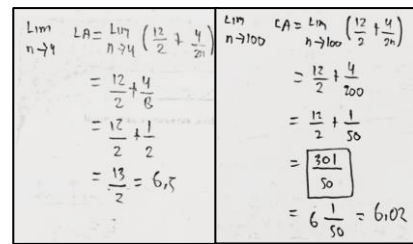 Lim n→4 LA = Lim n→4 (12/2 + 4/2n)
= 12/2 + 4/8
= 12/2 + 1/2
= 13/2 = 6,5
Lim n→100 LA = Lim n→100 (12/2 + 4/2n)
= 12/2 + 4/200
= 12/2 + 1/50
= 301/50
= 6 1/50 = 6,02